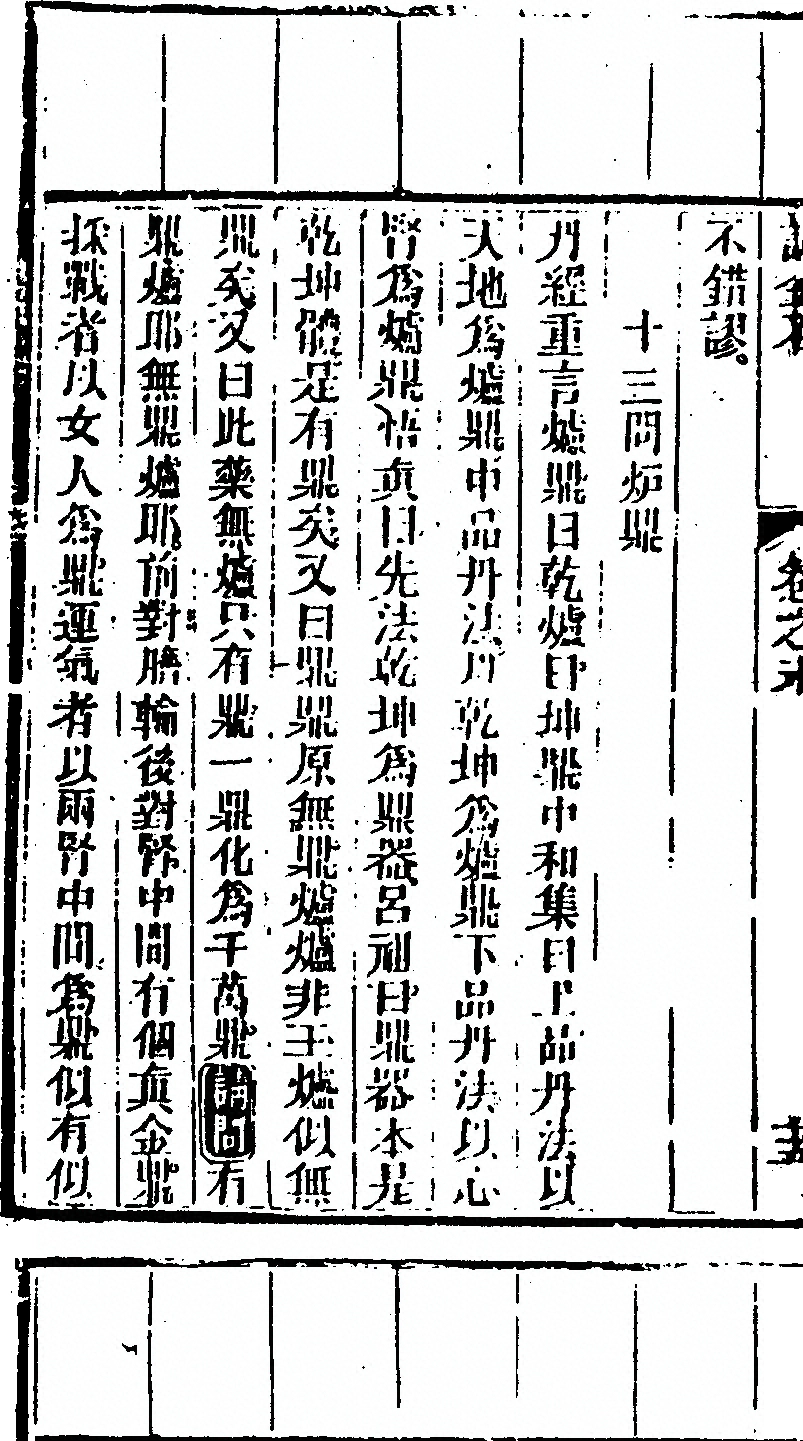 不錯謬
十三問炉鼎
丹經重言爐鼎曰乾爐曰坤鼎中和集曰上品丹法以
天地爲爐鼎中品丹法以乾坤爲爐鼎下品丹法以心
腎爲爐鼎悟真曰先法乾坤爲鼎器呂祖曰鼎器本是
乾坤體是有鼎矣又曰鼎鼎原無鼎爐爐非玉爐似無
鼎矣又曰此藥無爐只有鼎一鼎化爲千萬鼎請問有
鼎爐耶無鼎爐耶前對臍輪後對腎中間有個真金鼎
採戰者以女人爲鼎運氣者以兩腎中間爲鼎似有似